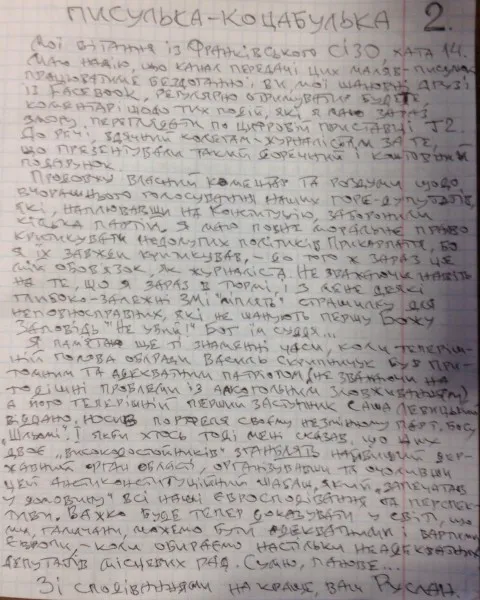 ПИСУЛЬКА-КОЦАБУЛЬКА 2.
Мої вітання із Франківського СІЗО, хата 14.
Маю надію, що канал передачі цих маляв-писульок
працюватиме бездоганно, і ви, мої шановні друзі
із Facebook, регулярно отримувати будете
коментарі щодо тих подій, які я маю зараз
змогу переглядати по цифровій приставці Т2.
До речі, вдячний колегам-журналістам за те,
що презентували такий доречний і коштовний
подарунок.
Продовжу власний коментар та роздуми щодо
вчорашнього голосування наших горе-депутатів,
які, наплювавши на Конституцію, заборонили
кілька партій. Я маю повне моральне право
критикувати недолугих політиків Прикарпаття, бо
я їх завжди критикував, - до того ж зараз це
мій обов'язок, як журналіста. Не зважаючи навіть
на те, що я зараз в тюрмі, і з мене деякі
глибоко-залежні ЗМІ "ліплять" страшилку для
неповносправних, які не шанують першу Божу
заповідь "Не убий"! Бог їм суддя...
Я памятаю ще ті знаменні часи, коли теперіш-
ній голова облради Василь Скрипничук був при-
томним та адекватним патріотом (не зважаючи на
тодішні проблеми із алкогольним зловживанням)
а його теперішній перший заступник Саша Левицький
віддано, носив портфеля своєму незмінному парт. босу,
"Шльомі". І якби хтось тоді мені сказав, що цих
двоє "високодостойників" зганблять найвищий дер-
жавний орган області, організувавши та очоливши
цей антиконституційний шабаш, який "запечатав
у домовину" всі наші євросподівання та перспек-
тиви. Важко буде тепер доказувати у світі, що
ми, галичани, можемо бути адекватними і вартими
Європи, - коли обираємо настільки неадекватних
депутатів місцевих рад. Сумно, панове...
Зі сподіваннями на краще, ваш Руслан.